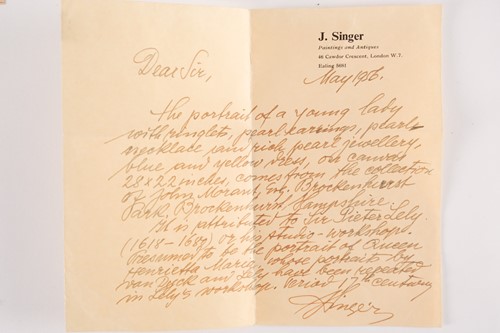 J. Singer
Paintings and Antiques
86 Cowdor Crescent, London W.7.
Ealing 5691
Dear Sir,
May 1956.
The portrait of a young lady
with ringlets, pearl earrings, pearl
necklace and rich pearl jewellery,
blue and yellow dress, on canvas
28 x 22 inches comes from the collection
of John Morant, Esq. Brockenhurst
Park, Brockenhurst Hampshire.
It is attributed to Sir Pieter Lely.
(1618-1680) or his studio-workshop.
Presumed to be the portrait of Queen
Henrietta Maria whose portraits by
van Dyck and Lely have been repeated
in Lely's workshop. Period 17th century
J Singer